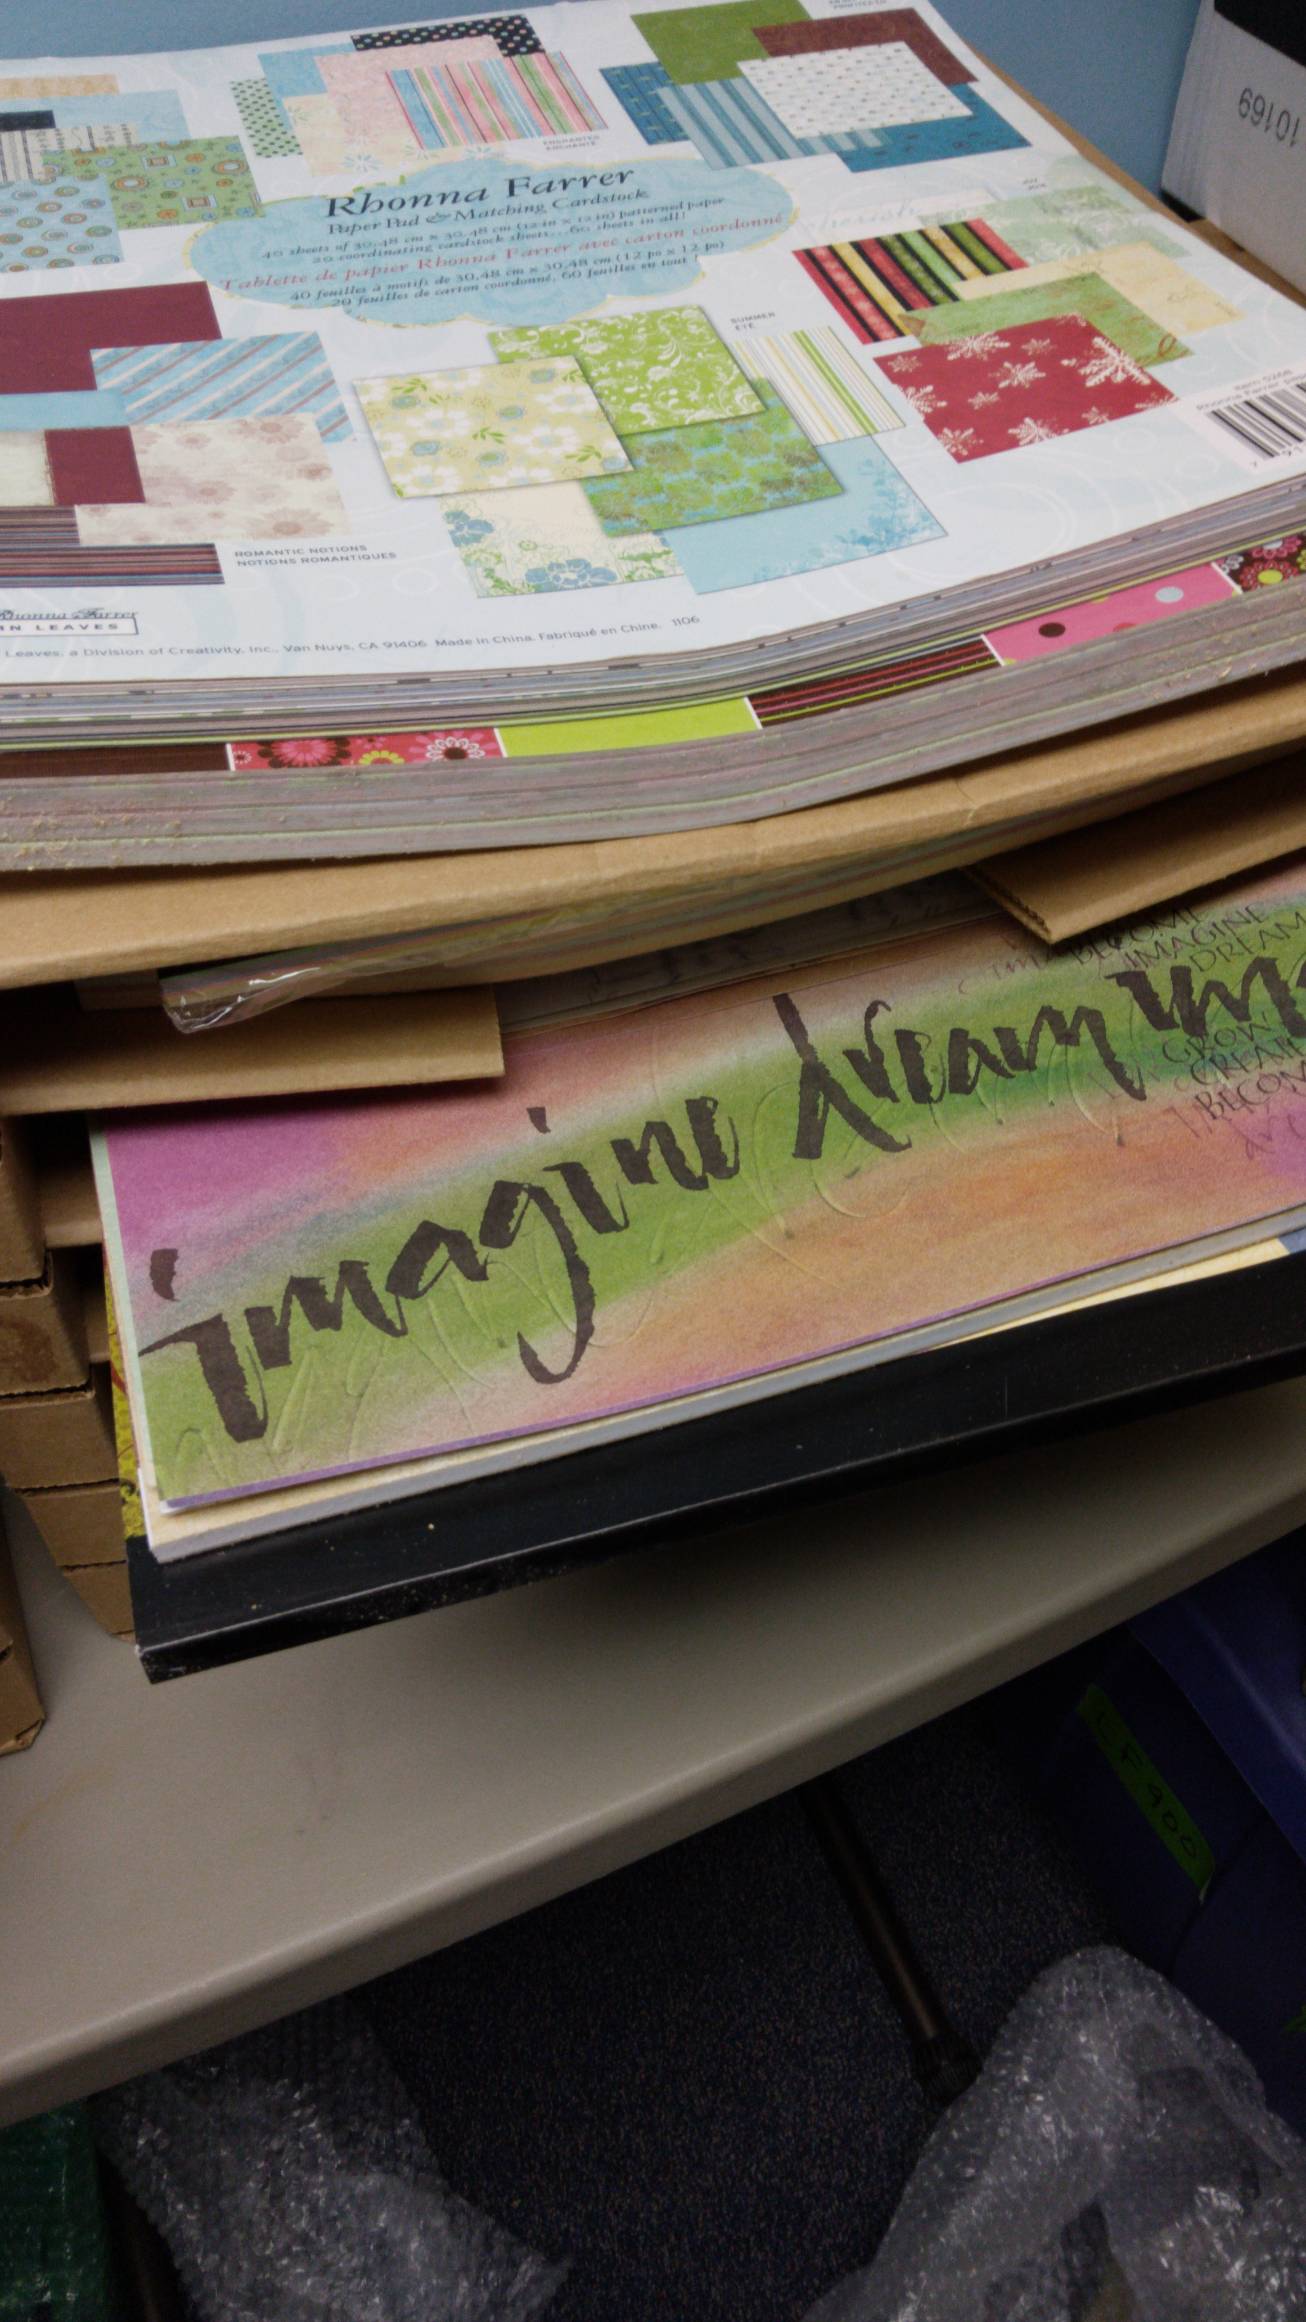 10169
ENCHANTED
ENCHANTÉ
Rhonna Farrer
Paper Pad & Matching Cardstock
40 sheets of 30.48 cm x 30.48 cm (12 in x 12 in) patterned paper
20 coordinating cardstock sheets...60 sheets in all!
Tablette de papier Rhonna Farrer avec carton coordonné
40 feuilles à motifs de 30,48 cm x 30,48 cm (12 po x 12 po)
20 feuilles de carton coordonné, 60 feuilles en tout !
cherish
SUMMER
ÉTÉ
ROMANTIC NOTIONS
NOTIONS ROMANTIQUES
Rhonna Farrer
LEAVES
Leaves, a Division of Creativity, Inc., Van Nuys, CA 91406 Made in China. Fabriqué en Chine. 1106
BECOME
IMAGINE
DREAM
imagine dream
GROW
CREATE
BECOM
LF 900